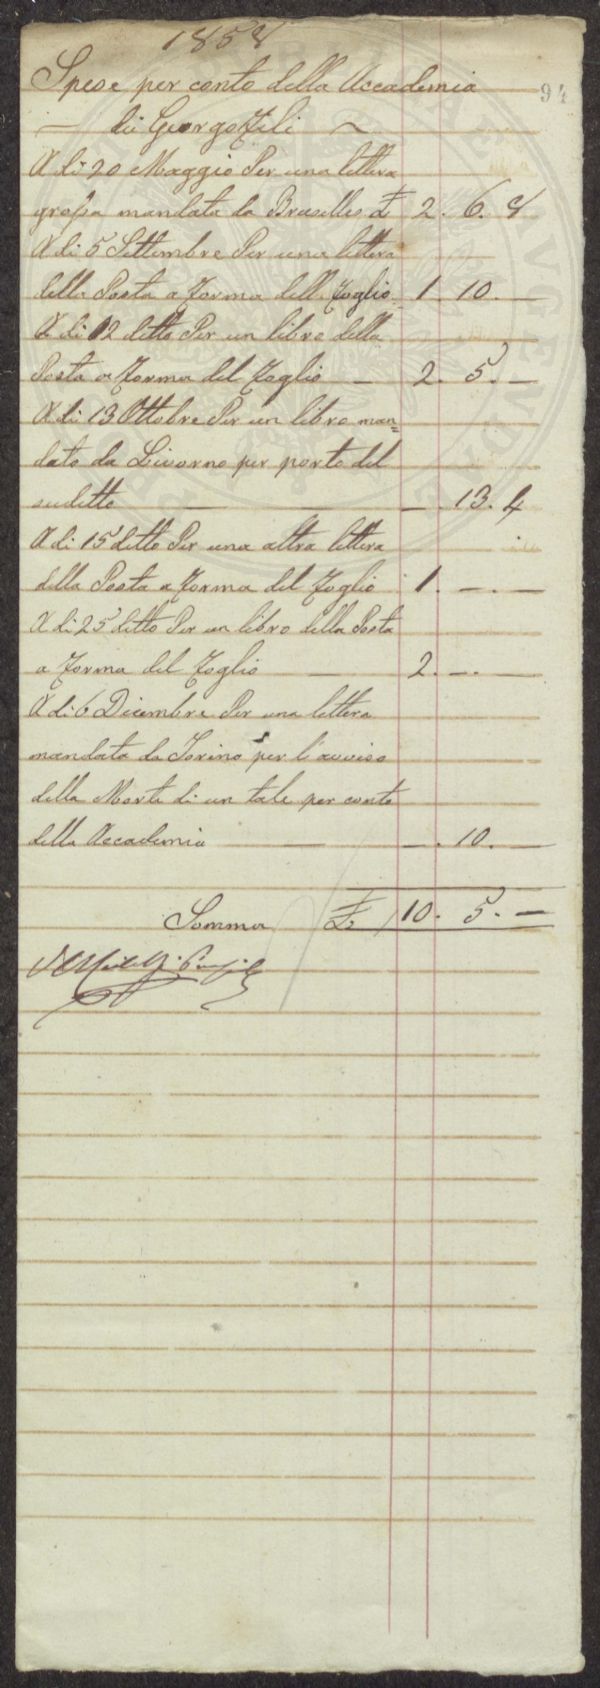 1858
94
Spese per conto della Accademia
— dei Georgofili —
A di 20 Maggio Per una lettera
grossa mandata da Bruselles £ 2. 6. 8
A di 5 Settembre Per una lettera
della Posta a forma dell foglio 1. 10. —
A di 12 detto Per un libro della
Posta a forma del foglio — 2. 5. —
A di 13 Ottobre Per un libro man=
dato da Livorno per porto del
sudetto — — . 13. 4
A di 15 detto Per una altra lettera
della Posta a forma del foglio 1. —. —
A di 25 detto Per un libro della Posta
a forma del foglio — 2. —. —
A di 6 Dicembre Per una lettera
mandata da Torino per l'avviso
della Morte di un tale per conto
della Accademia — — . 10. —
Somma £ 10. 5. —